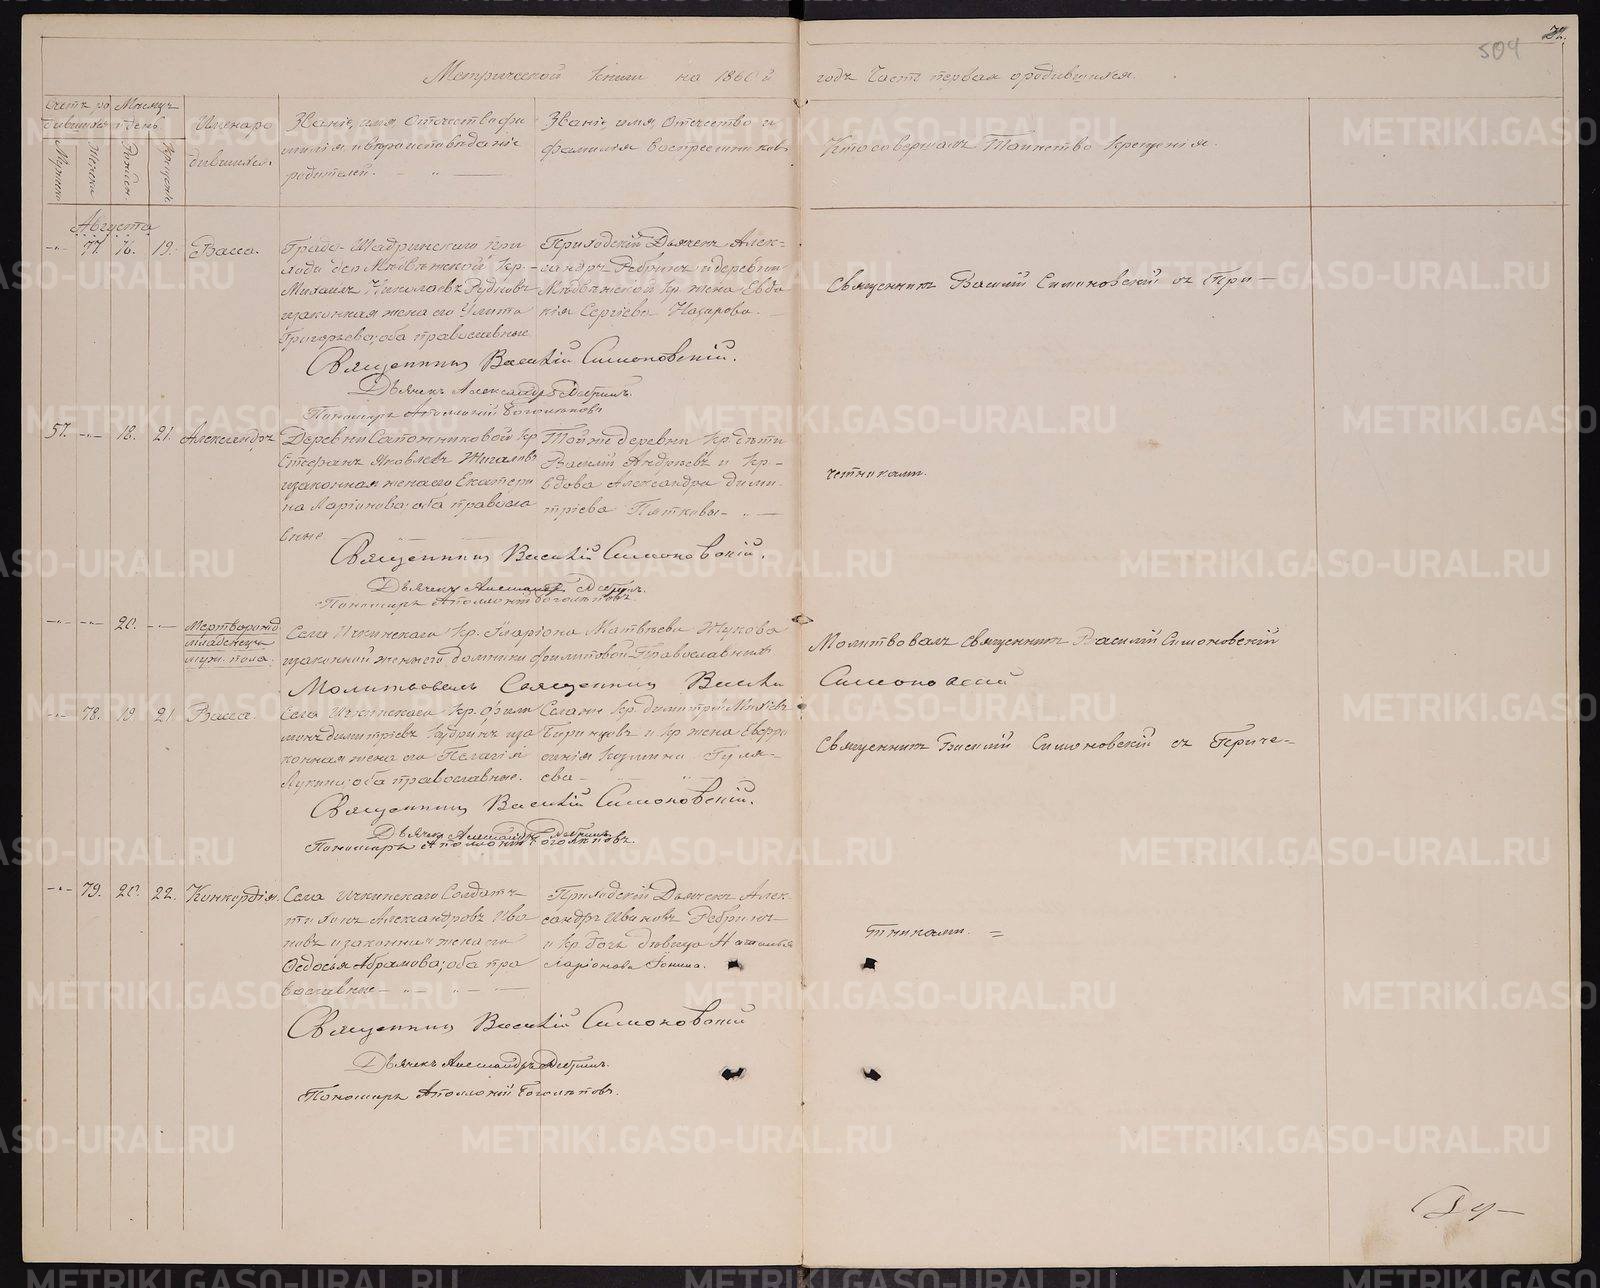 504
Метрической книги на 1866й годъ Часть первая о родившихся.
Счетъ ро
дившихся
Мужеска
Женска
Мѣсяцъ
и день
Рожден.
Крещенія
Имена ро
дившихся.
Званіе, имя, отчество, фа
милія и вѣроисповѣданіе
родителей.
Званіе, имя, отчество и
фамилія воспріемниковъ
Кто совершалъ Таинство Крещенія.
Августа
77. 16. 19. Васса.
Градо-Шадринскаго при
хода деп Медвѣжской Кр.
Михаилъ Николаевъ
и законная жена его Улита
Григорьева; оба православные
Приходскій Дьячекъ Алек=
сандръ Ребринъ и деревни
Медвѣжской Кр. жена Евдо
кія Сергіева Назарова.
Священникъ Василій Симоновскій съ При-
Священникъ Василій Симоновскій.
Дьячекъ Александръ Ребринъ.
Пономарь Аполлоній Боголѣповъ
57. 18. 21. Александръ
Деревни Сапожниковой Кр
Стефанъ Яковлевъ Жигаловъ
и законная жена его Екатери
на Ларіонова; оба правосла
вные
Той же деревни Кр. дѣти
Василій Андреевъ и Кр-
вдова Александра Дими
тріева Пяткова
четниками.
Священникъ Василій Симоновскій.
Дьячекъ Александръ Ребринъ.
Пономарь Аполлоній Боголѣповъ.
20. Мертворожд
младенецъ
муж. пола.
Села Ичкинскаго Кр. Иларіона Матвѣева Жукова
и законной жены его Домники Филиповой Православныхъ
Молитвовалъ Священникъ Василій Симоновскій
Молитвовалъ Священникъ Василій Симоновскій
78. 19. 21. Васса.
Села Ичкинскаго Кр. Фили
монъ Димитріевъ и за
конная жена его Пелагія
Лукина; оба православные.
Села Кр. Димитрій
и Кр. жена Евфро
синія Гуля-
ева
Священникъ Василій Симоновскій съ Приче-
Священникъ Василій Симоновскій.
Дьячекъ Александръ Ребринъ.
Пономарь Аполлоній Боголѣповъ.
79. 20. 22. Конкордія.
Села Ичкинскаго Солдатъ
Александровъ Ива
новъ и законная жена его
Ѳедосья Абрамова; оба пра
вославные
Приходскій Дьячекъ Алек
сандръ Ивановъ Ребринъ
и Кр. дочь дѣвица Наталья
Ларіонова
тниками.
Священникъ Василій Симоновскій
Дьячекъ Александръ Ребринъ.
Пономарь Аполлоній Боголѣповъ.
METRIKI.GASO-URAL.RU